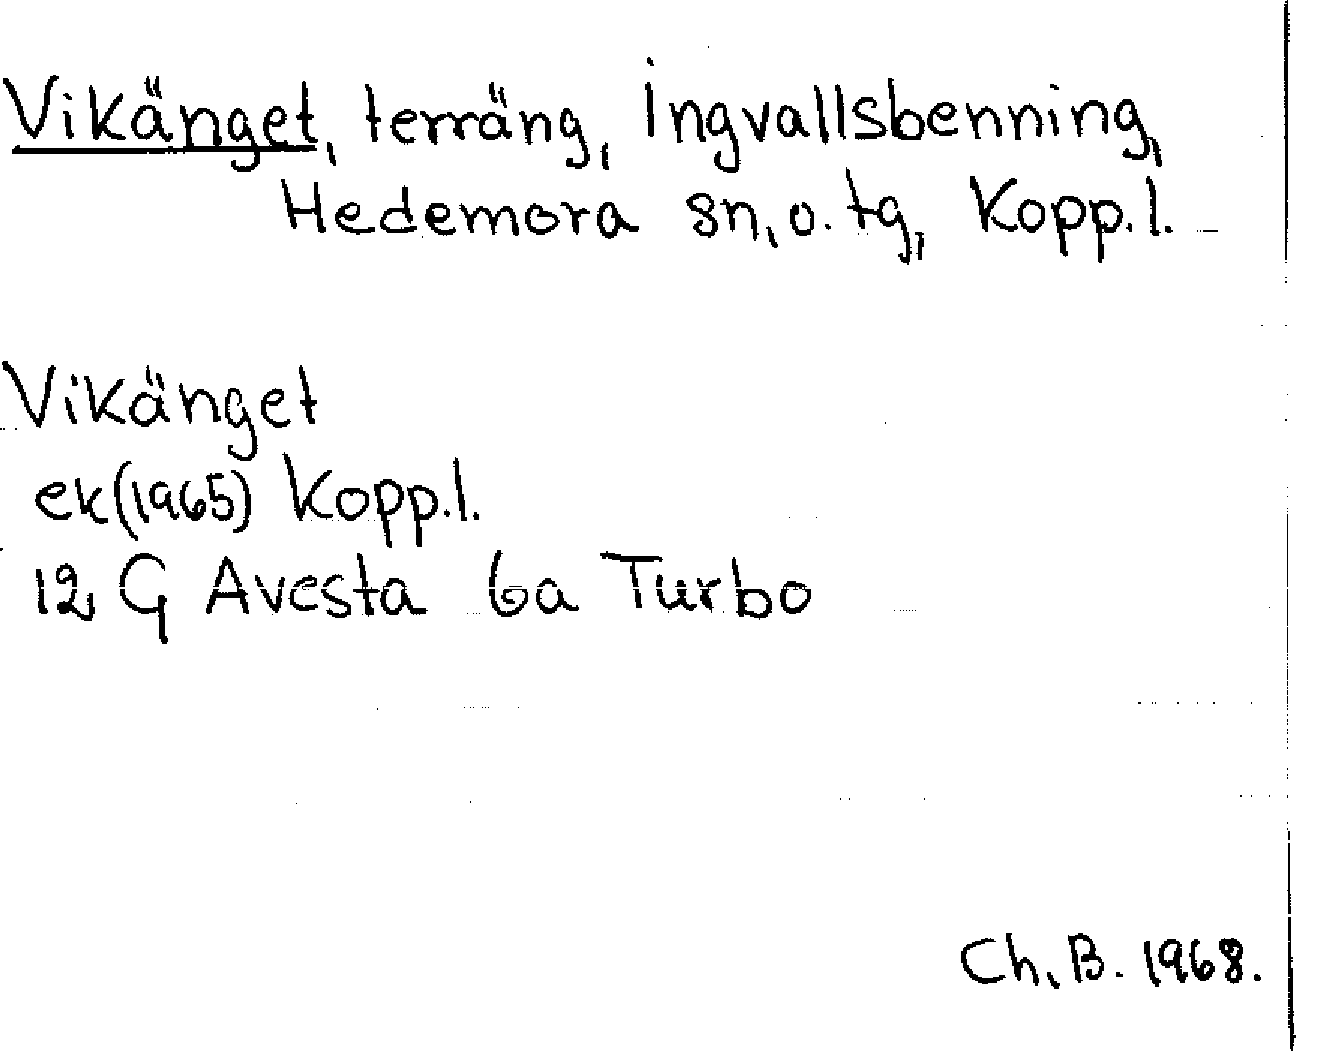 Vikänget, terräng, Ingvallsbenning,
Hedemora sn, o. tg, Kopp.l.
Vikänget
ek(1965) Kopp.l.
12 G Avesta 6a Turbo
Ch. B. 1968.